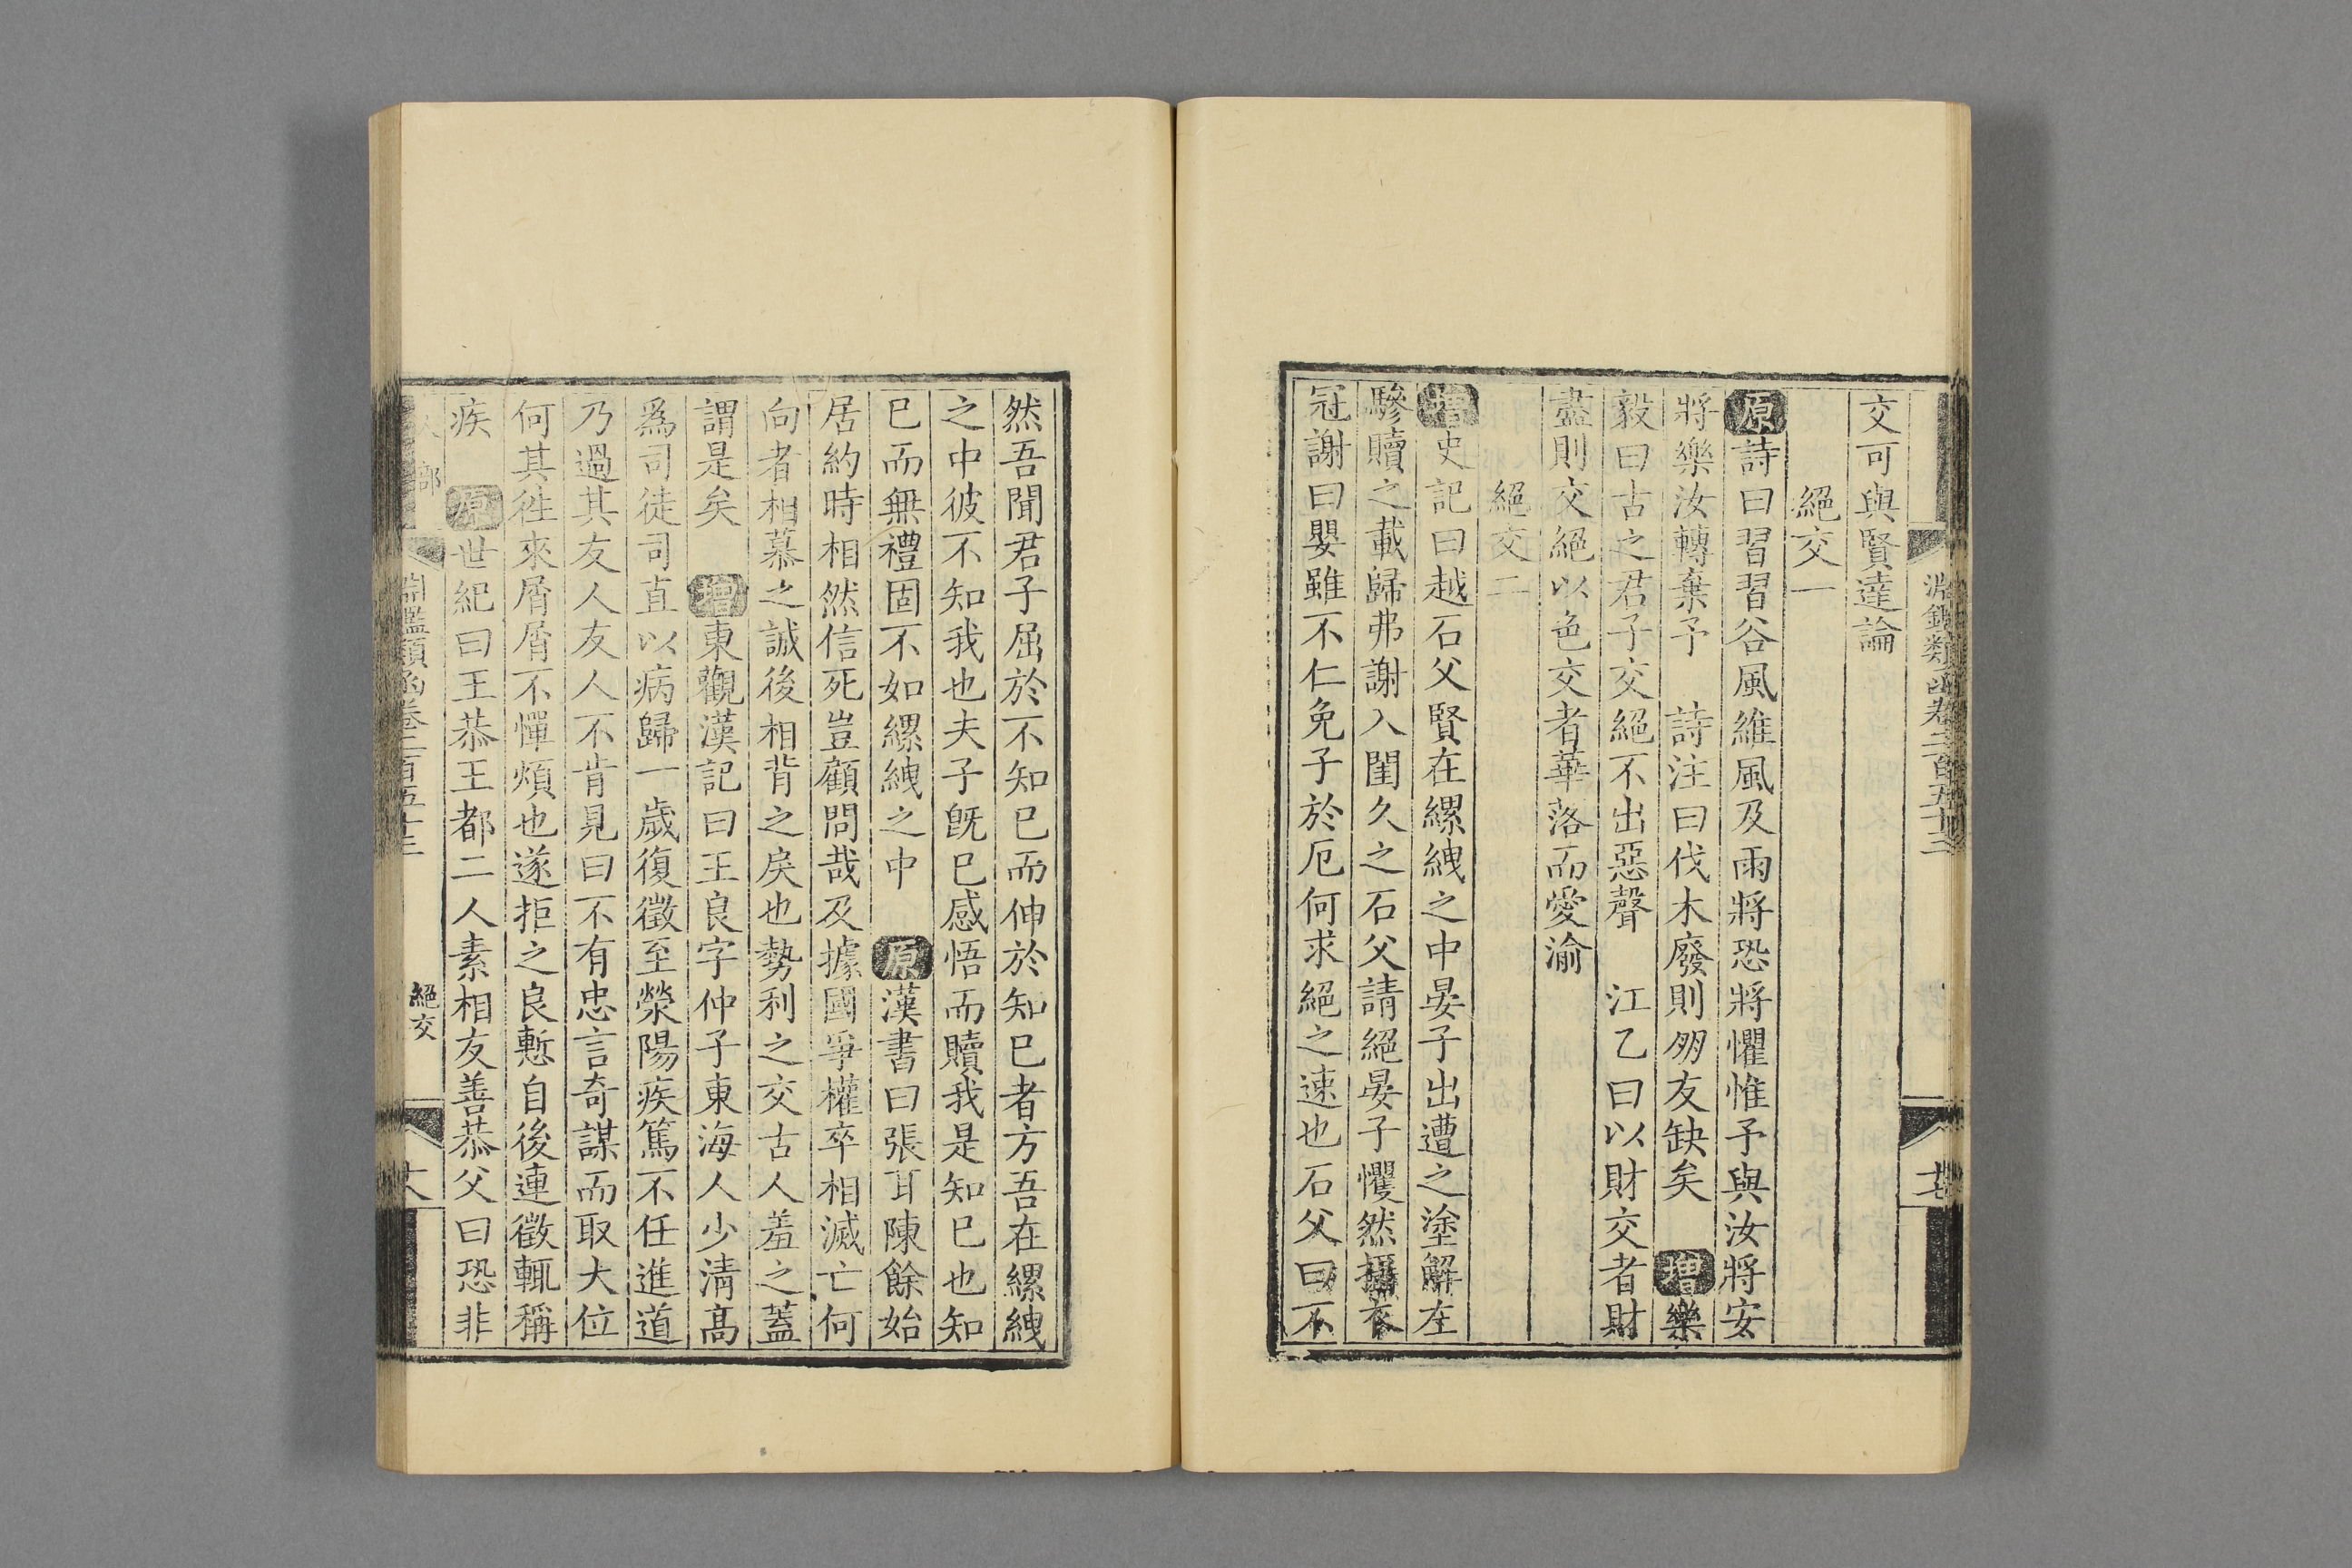 淵鑑類函卷二百五十三
交可與賢達論
絕交一
原詩曰習習谷風維風及雨將恐將懼惟予與汝將安
將樂汝轉棄予 詩注曰伐木廢則朋友缺矣 增樂
毅曰古之君子交絕不出惡聲 江乙曰以財交者財
盡則交絕以色交者華落而愛渝
絕交二
增史記曰越石父賢在縲絏之中晏子出遭之塗解左
驂贖之載歸弗謝入閨久之石父請絕晏子戄然攝衣
冠謝曰嬰雖不仁免子於厄何求絕之速也石父曰不
然吾聞君子屈於不知已而伸於知已者方吾在縲絏
之中彼不知我也夫子旣已感悟而贖我是知已也知
已而無禮固不如縲絏之中 原漢書曰張耳陳餘始
居約時相然信死豈顧問哉及據國爭權卒相滅亡何
向者相慕之誠後相背之戾也勢利之交古人羞之蓋
謂是矣 增東觀漢記曰王良字仲子東海人少清高
爲司徒司直以病歸一歲復徵至滎陽疾篤不任進道
乃過其友人友人不肯見曰不有忠言奇謀而取大位
何其徃來屑屑不憚煩也遂拒之良慙自後連徵輒稱
疾 原世紀曰王恭王都二人素相友善恭父曰恐非
人部
淵鑑類函卷二百五十三
絕交